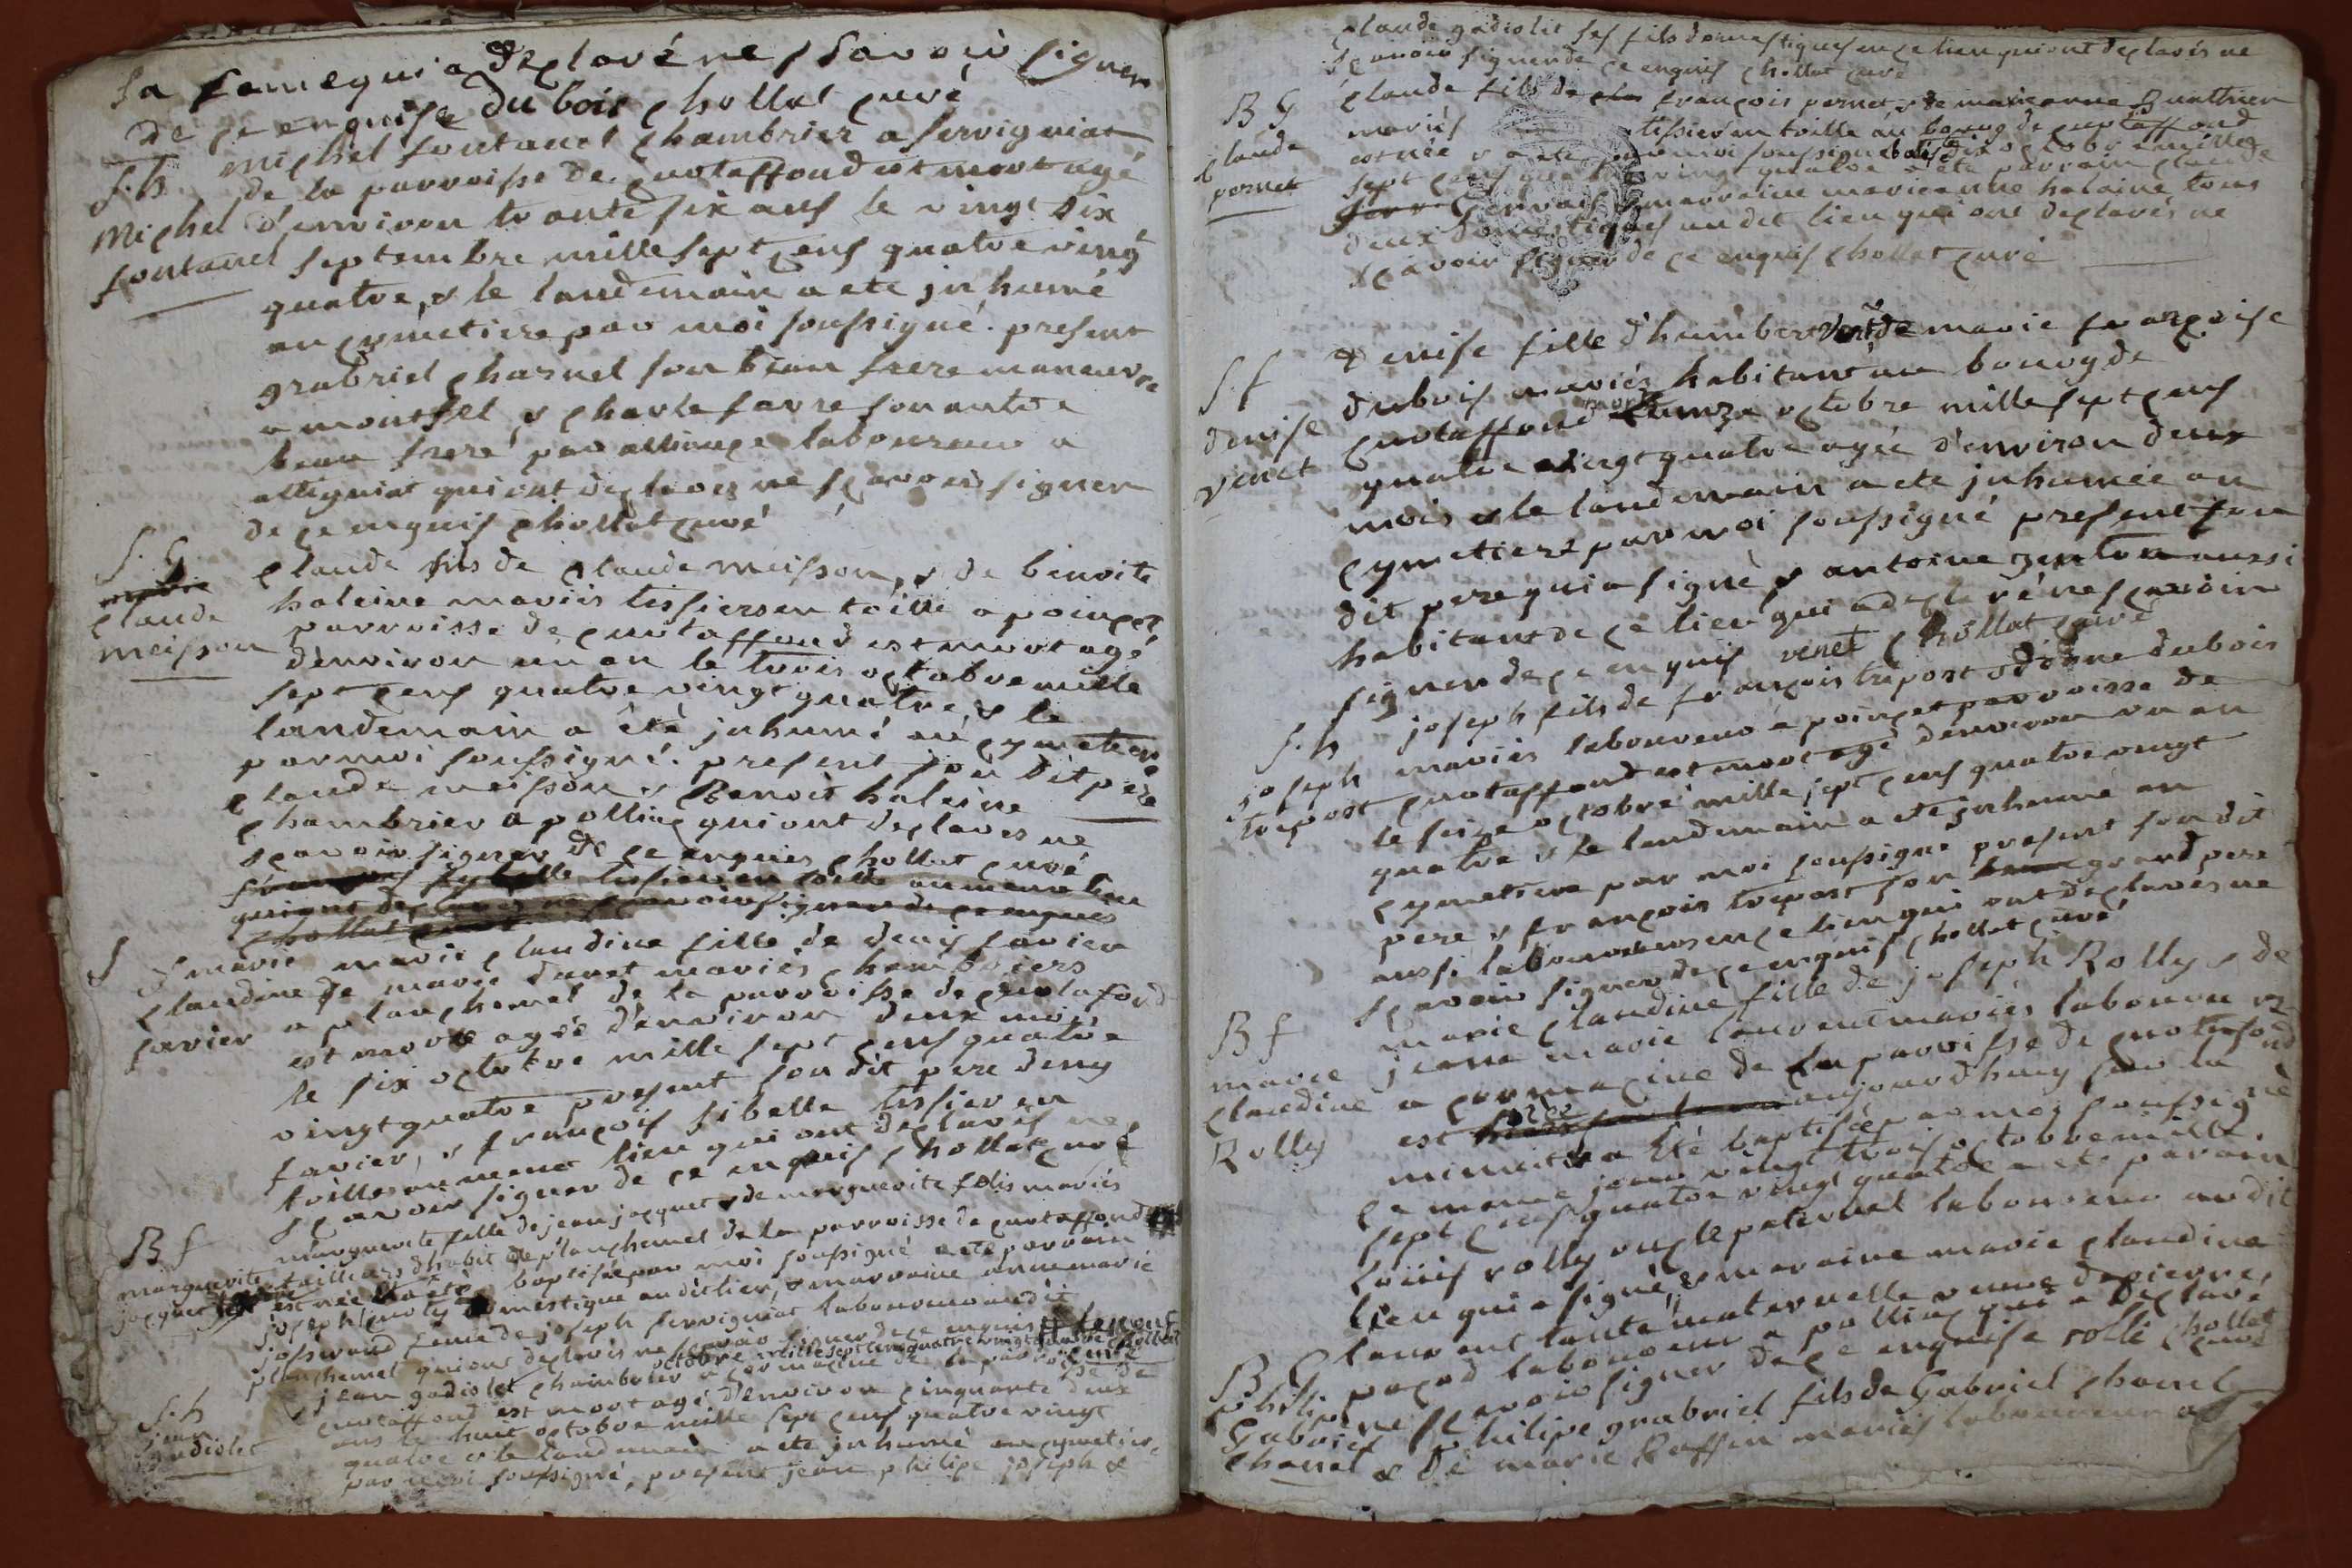 sa feme qui a declaré ne scavoir signer
de ce enquise dubois chollat curé
s. h.
michel
fontanel
michel fontanel chambrier a servigniat
de la parroisse de curtaffond est mort agé
d'environ trante six ans le vingt six
septembre mille sept cens quatre ving
quatre, & le landemain a ete inhumé
au cymetiere par moi soussigné. present
grabriel charnel son beau frere maneuvre
a montfel & charle favre son autre
beau frere par alliance laboureur a
attigniat qui ont declares ne scavoir signer
de ce enquis chollat curé
S. G.
claude
meisson
claude fils de claude meisson, & de benoite
haleine mariés tissiers en toille a poincet
parroisse de curtaffond est mort agé
d'environ un an le trois octobre mille
sept cens quatre vingt quatre & le
landemain a été inhumé au cymetiere
par moi soussigné. present son dit pere
claude meisson & Benoit haleine
chambrier a polliac qui ont declares ne
scavoir signer de ce enquis chollat curé
tissier en toille au meme lieu
qui ont declarés ne scavoir signer de ce enquis
chollat curé
S
marie
claudine
favier
marie claudine fille de denis favier
de marie danet mariés chambriers
a planchemel de la parroisse de curtafond
est morte agée d'environ deux mois
le six octobre mille sept cens quatre
vingt quatre present son dit pere deny
favier, & françois sibelle tissier en
toille au meme lieu qui ont declarés ne
scavoir signer de ce enquis chollat curé
B f
marguerite
jacquet
marguerite fille de jean jacquet & de marguerite felis mariés
tailliers d'habit de planchemel de la parroisse de curtaffond
est née & a été baptisée par moi soussigné a ete parrain
joseph domestique au dit lieu, & marraine anne marie
josserand feme de joseph servigniat laboureur audit
planchemel qui ont declarés ne scavoir signer de ce enquis le neuf
octobre mille sept cens quatre vingt quatre chollat curé
S. h
jean
gadiolet
jean gadiolet chambrier a cormacine de la parroisse de
curtaffond est mort agé d'environ cinquante deux
ans le huit octobre mille sept cens quatre vingt
quatre & le landemain a ete inhumé au cymetiere
par moi soussigné, present jean philipe joseph &
claude gadiolet ses fils domestiques en ce lieu qui ont declarés ne
scavoir signer de ce enquis chollat curé
B G
claude
pernet
claude fils de françois pernet & de marieanne Buathier
mariés tissier en toille au bourg de curtaffond
est née & a ete par moi soussigné baptisé dix octobre mille
sept cens quatre vingt quatre a été parrain claude
gervais & marraine marieanne halaine tous
deux domestiques au dit lieu qui ont declarés ne
scavoir signer de ce enquis chollat curé
S. f
denise
venet
denise fille d'humbert venet & de marie françoise
dubois mariés habitant au bourg de
curtaffond morte le onze octobre mille sept cens
quatre vingt quatre agée d'environ deux
mois & le landemain a ete inhumée au
cymetiere par moi soussigné present son
dit pere qui a signé & antoine aussi
habitant de ce lieu qui a declaré ne scavoir
signer de ce enquis venet chollat curé
S. h
joseph
trepost
joseph fils de françois trepost & d'anne dubois
mariés laboureurs a poincet parroisse de
curtaffond est mort agé d'environ un an
le seize octobre mille sept cens quatre vingt
quatre & le landemain a ete inhumé au
cymetiere par moi soussigné present son dit
pere & françois trepost son grand pere
aussi laboureurs en ce lieu qui ont declarés ne
scavoir signer de ce enquis chollat curé
B f
marie
claudine
Rolly
marie claudine fille de joseph Rolly & de
jeane marie laurent mariés laboureur
a cormacine de la parroisse de curtafond
est née aujourdhuy sur la
minuit & a été baptisée par moy soussigné
ce meme jour vingt trois octobre mille
sept cens quatre vingt quatre a ete parain
louis rolly oncle paternel laboureur audit
lieu qui a signé, & maraine marie claudine
laurent tante maternelle veuve de pierre
pacod laboureur a polliac qui a declaré
ne scavoir signer de ce enquise rolli chollat
curé
B. G
philipe
Gabriel
charnel
philipe grabriel fils de Gabriel charnel
& de marie Raffin mariés laboureur a